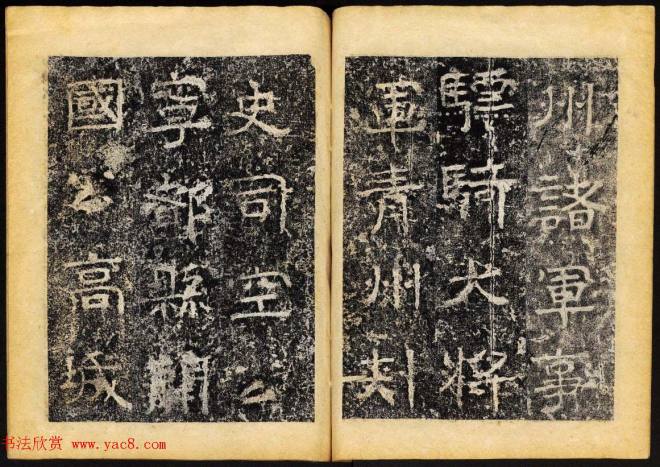 州諸軍事
驃騎大將
軍青州刺
史司空公
寧都縣開
國公高城
书法欣赏 www.yac8.com